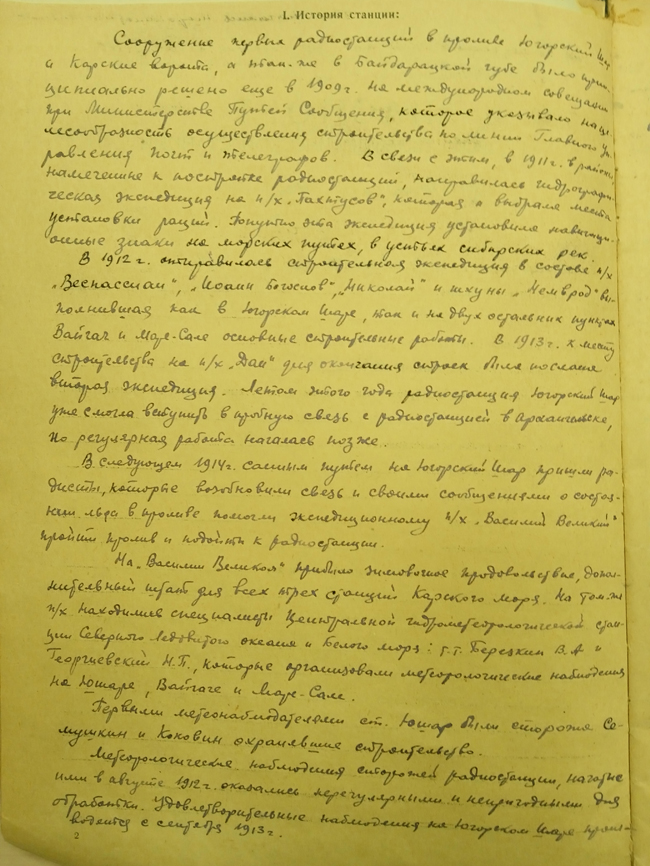 I. История станции:
Сооружение первых радиостанций в проливе Югорский Шар
и Карские ворота, а так-же в Байдарацкой губе было прин-
ципиально решено еще в 1909 г. на международном совещании
при Министерстве Путей Сообщения, которое указывало на це-
лесообразность осуществления строительства по линии Главного Уп-
равления почт и телеграфов. В связи с этим, в 1911 г. в районы
намеченные к постройке радиостанций, направилась гидрографи-
ческая экспедиция на п/х „Пахтусов", которая и выбрала места
установки раций. Попутно эта экспедиция установила навигаци-
онные знаки на морских путях, в устьях сибирских рек.
В 1912 г. отправилась строительная экспедиция в составе п/х
„Веспассиан", „Иоанн Богослов", „Николай" и шхуны „Немврод" вы-
полнившая как в Югорском Шаре, так и на двух остальних пунктах
Вайгач и Маре-Сале основные строительные работы. В 1913 г. к месту
строительства на п/х „Дан" для окончания строек была послана
вторая экспедиция. Летом этого года радиостанция Югорский Шар
уже смогла вступить в пробную связь с радиостанцией в Архангельске,
но регулярная работа началась позже.
В следующем 1914 г. санным путем на Югорский Шар пришли ра-
дисты, которые возобновили связь и своими сообщениями о состоя-
нии льда в проливе помогли экспедиционному п/х „Василий Великий"
пройти пролив и подойти к радиостанции.
На „Василии Великом" прибыло зимовочное продовольствие, допол-
нительный штат для всех трех станций Карского моря. На том-же
п/х находились специалисты Центральной гидрометеорологической стан-
ции Северного Ледовитого океана и Белого моря: т.т. Березкин В.А и
Георгиевский Н.П., которые организовали метеорологические наблюдения
на Юшаре, Вайгаче и Маре-Сале.
Первыми метеонаблюдателями ст. Юшар были сторожа Се-
мушкин и Коковин охранявшие строительство.
Метеорологические наблюдения сторожей радиостанции, начатые
ими в августе 1912 г. оказались нерегулярными и непригодными для
обработки. Удовлетворительные наблюдения на Югорском Шаре произ-
водятся с сентября 1913 г.
2